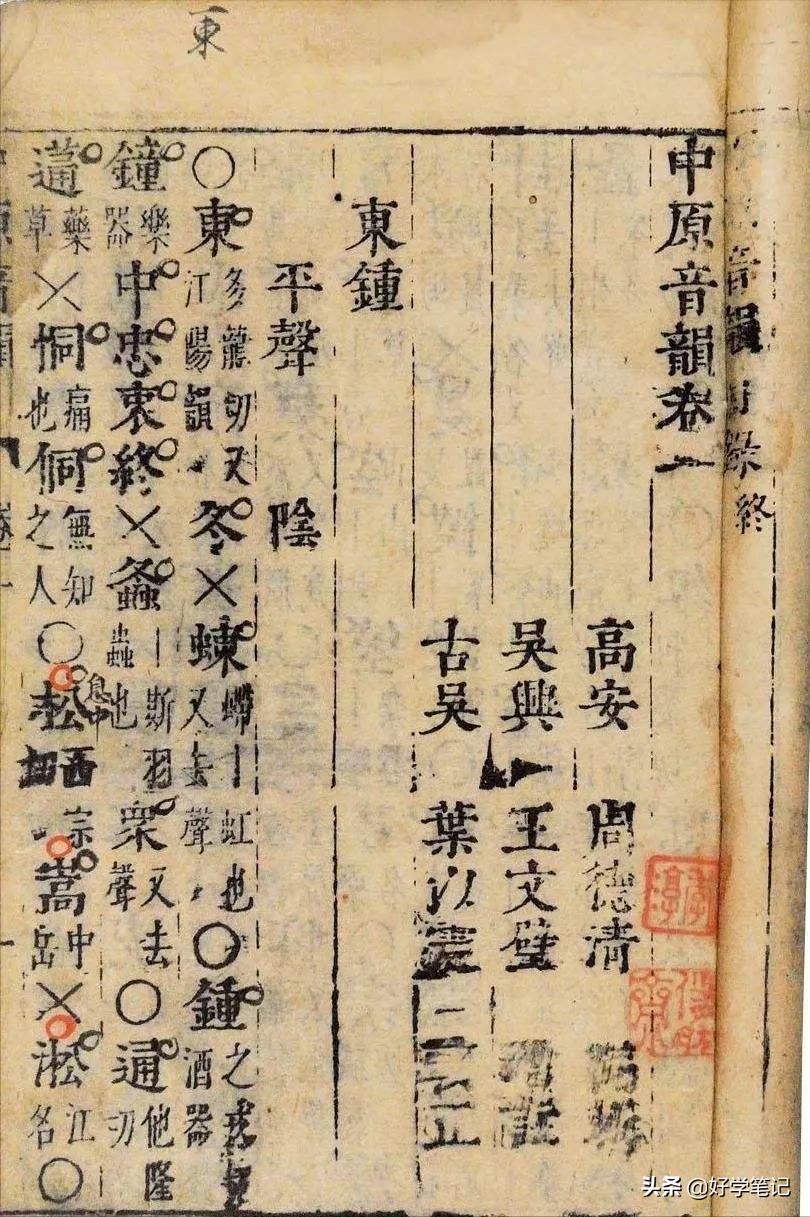 東
音韻附錄終
中原音韻卷一
高安 周德清
吳興 王文璧 增註
古吳 葉以震
東鍾
平聲 陰
○東多籠切又江陽韻冬×蝀螮丨虹也又去聲○鍾之酒器
鐘樂器中忠衷終×螽丨斯羽蟲也衆又去聲○通他隆切
蓪藥草×恫痛也侗無知之人○松息中切嵩中岳×淞江名○
头条 @好学笔记